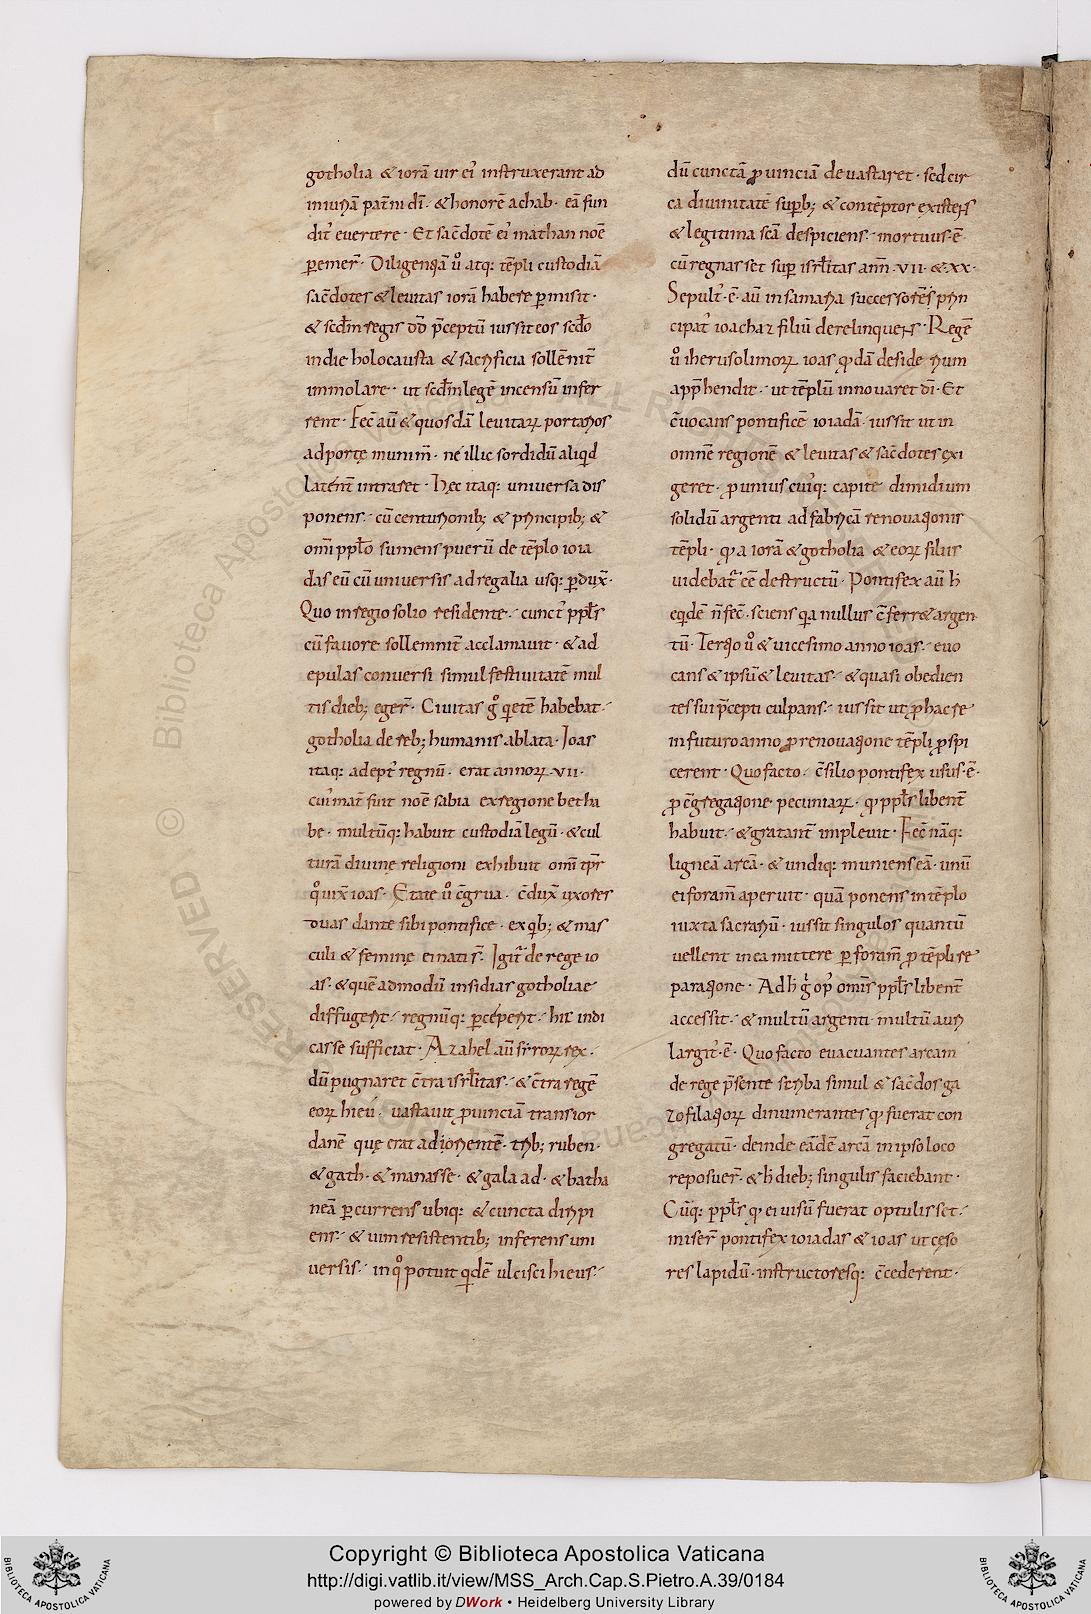 gotholia & iorā uir ei᾽ instruxerant ad
iniuriā pat̄ni dī · & honorē achab · eā fun
dit᾽ euertere · Et sac̄dotē ei᾽ mathan noē
ꝑemer̄ · Diligentiā u᾽o atq: tēpli custodiā
sac̄dotes & leuitas iorā habere ꝑmisit ·
& scd̄m regis dd̄ p̄ceptū iussit eos scd̄o
in die holocausta & sacrificia sollēnit̄
immolare · ut scd̄m legē incensū infer
rent · Fec̄ aū & quosdā leuitaꝝ portarios
ad portę munim̄ · ne illic sordidū aliqid
latent̄ intraret · Hęc itaq: uniuersa dis
ponens · cū centurionib; & principib; &
om̄i ppl̄o sumens puerū de tēplo ioia
das eū cū uniuersis ad regalia usq: ꝑdux̄ ·
Quo in regio solio residente · cunct᾽ ppl̄s
cū fauore sollemnit̄ acclamauit · & ad
epulas conuersi simul festiuitatē mul
tis dieb; eger̄ · Ciuitas g᾽ qietē habebat ·
gotholia de reb; humanis ablata · Ioas
itaq: adept᾽ regnū · erat annoꝝ · VII ·
cui᾽ mat̄ fuit noē sabia ex regione betha
be · multūq: habuit custodiā legū · & cul
turā diuinę religioni exhibuit om̄i tp̄r
q᾽ uix̄ ioas · Etate u᾽o c̄grua · c̄dux̄ uxores
duas dante sibi pontifice · ex qib; & mas
culi & feminę ei nati s̄ · Igit᾽ de rege io
as · & quēadmodū insidias gotholiae
diffugerit · regnūq: ꝑceperit · hic indi
casse sufficiat · Azahel aū siroꝝ rex ·
dū pugnaret c̄tra isrl̄itas · & c̄tra regē
eoꝝ hieu · uastauit ꝓuinciā transior
danē quę erat ad orientē · trib; ruben ·
& gath · & manasse · & galaad · & batha
neā ꝑcurrens ubiq: & cuncta diripi
ens · & uim resistentib; inferens uni
uersis · in q᾽ potuit qidē ulcisci hieus ·
dū cunctā ꝓuinciā deuastaret · sed cir
ca diuinitatē suꝑb; & contēptor existens
& legitima scā despiciens · mortuus · ē ·
cū regnasset suꝑ isrl̄itas ann̄ · VII · & · XX ·
Sepult᾽ · ē · aū in samaria successorē sui prin
cipat᾽ ioachaz filiū derelinquens · Regē
u᾽o iherusolimoꝝ ioas qdā desiderium
app̄hendit · ut tēplū innouaret dī · Et
c̄uocans pontificē ioiadā · iussit ut in
omnē regionē & leuitas & sac̄dotes exi
geret · ꝓ unius cui᾽q: capite dimidium
solidū argenti ad fabricā renouationis
tēpli · qia iorā & gotholia & eoꝝ filiis
uidebat᾽ eē destructū · Pontifex aū h̄
eqidē n̄ fec̄ · sciens qia nullus c̄ferr& argen
tū · Tertio u᾽o & uicesimo anno ioas · euo
cans & ipsū & leuitas · & quasi obedien
tes sui p̄cepti culpans · iussit ut ꝓ hac re
in futuro anno ꝓ renouatione tēpli ꝓspi
cerent · Quo facto · c̄silio pontifex usus · ē ·
ꝓ c̄gregatione pecuniaꝝ · q ppl̄s libent̄
habuit · & gratant̄ impleuit · Fec̄ nāq:
ligneā arcā · & undiq: muniens eā · unū
ei foram̄ aperuit · quā ponens in tēplo
iuxta sacrariū · iussit singulos quantū
uellent in ea mittere ꝑ foram̄ ꝓ tēpli re
paratione · Ad h̄ g᾽ op᾽ omīs ppl̄s libent̄
accessit · & multū argenti multū auri
largit᾽ · ē · Quo facto euacuantes arcam
de rege p̄sente scriba simul & sac̄dos ga
zofilatioꝝ dinumerantes q fuerat con
gregatū · deinde eādē arcā in ipso loco
reposuer̄ · & h̄ dieb; singulis faciebant ·
Cūq: ppl̄s q ei uisū fuerat optulisset ·
miser̄ pontifex ioiadas & ioas ut cęso
res lapidū · instructoresq: c̄cederent ·
RESERVED © Biblioteca Apostolica Vaticana
Copyright © Biblioteca Apostolica Vaticana
http://digi.vatlib.it/view/MSS_Arch.Cap.S.Pietro.A.39/0184
powered by DWork • Heidelberg University Library
BIBLIOTECA APOSTOLICA VATICANA
BIBLIOTECA APOSTOLICA VATICANA